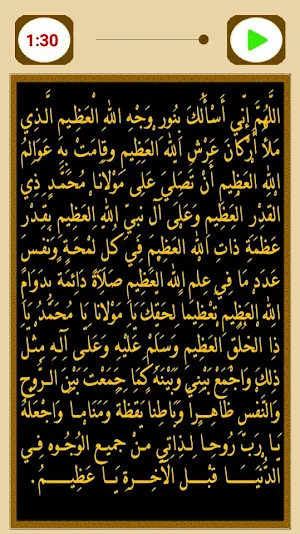 1:30
اللَّهُمَّ إِنِّي أَسْأَلُكَ بِنُورِ وَجْهِ اللهِ الْعَظِيمِ الَّذِي
مَلَأَ أَرْكَانَ عَرْشِ اللهِ الْعَظِيمِ وَقَامَتْ بِهِ عَوَالِمُ
اللهِ الْعَظِيمِ أَنْ تُصَلِّيَ عَلَى مَوْلَانَا مُحَمَّدٍ ذِي
الْقَدْرِ الْعَظِيمِ وَعَلَى آلِ نَبِيِّ اللهِ الْعَظِيمِ بِقَدْرِ
عَظَمَةِ ذَاتِ اللهِ الْعَظِيمِ فِي كُلِّ لَمْحَةٍ وَنَفَسٍ
عَدَدَ مَا فِي عِلْمِ اللهِ الْعَظِيمِ صَلَاةً دَائِمَةً بِدَوَامِ
اللهِ الْعَظِيمِ تَعْظِيمًا لِحَقِّكَ يَا مَوْلَانَا يَا مُحَمَّدُ يَا
ذَا الْخُلُقِ الْعَظِيمِ وَسَلِّمْ عَلَيْهِ وَعَلَى آلِهِ مِثْلَ
ذَلِكَ وَاجْمَعْ بَيْنِي وَبَيْنَهُ كَمَا جَمَعْتَ بَيْنَ الرُّوحِ
وَالنَّفْسِ ظَاهِرًا وَبَاطِنًا يَقَظَةً وَمَنَامًا وَاجْعَلْهُ
يَا رَبِّ رُوحًا لِذَاتِي مِنْ جَمِيعِ الْوُجُوهِ فِي
الدُّنْيَا قَبْلَ الْآخِرَةِ يَا عَظِيمُ.